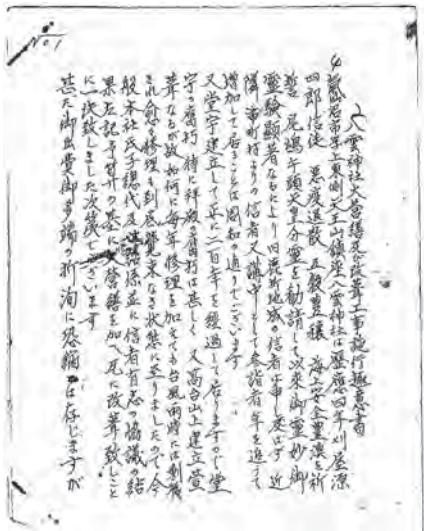 No.1
八雲神社大営繕及び改葺工事施行趣意書
年上東側天王山鎮座八雲神社は歴應四年刈屋源
四郎信徒 悪疫退散 五穀豊穣 海上安全豊漁を祈
誓 尾張牛頭天皇分霊を勧請して以来 御霊妙御
霊験顕著なるにより旧鹿折地域の信者は申し及ばず 近
隣市町村よりの信者又講中として参詣者年を追って
増加して居ることは周知の通りでございます
又堂宇建立して年に二百年を経過して居りますので堂
宇の腐朽 特に拝殿の腐朽は甚しく 又高台山上建立萱
葺なるが故如何に毎年修理を加えても台風雨時には剥離
され愈々修理も到底覚束なき状態に至りましたので今
般本社氏子総代及 関係並に信者有志の協議の結
果左記予算の基に大営繕を加え 死に改葺致しこと
に一決致しました次第でございます
甚だ御出費御多端の折洵に恐縮には存じますが